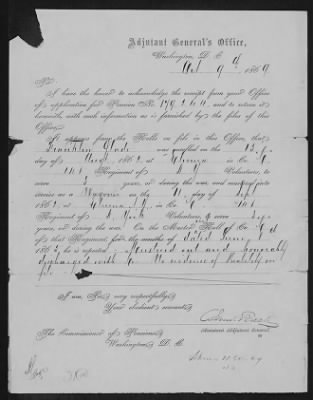 Adjutant General's Office,
Washington, D. C.
Oct 9 d 1869
Sir:
I have the honor to acknowledge the receipt from your Office
of application for Pension No. 179264, and to return it
herewith, with such information as is furnished by the files of this
Office.
It appears from the Rolls on file in this Office, that
Franklin was enrolled on the
day of 1862 at in Co. G,
141 Regiment of N Y Volunteers, to
serve 3 years, or during the war, and mustered into
service as a on the day of Sept
1862, at Elmira N. Y., in Co. G 141
Regiment of N. York Volunteers, to serve 3 yrs
years, or during the war. On the Muster Roll of Co. G
of that Regiment, for the months of dated June
186 , he is reported Mustered out and honorably
discharged with Co. No evidence of disability on
file.
I am, Sir, very respectfully,
Your obedient servant,
Assistant Adjutant General.
The Commissioner of Pensions,
Washington, D. C.